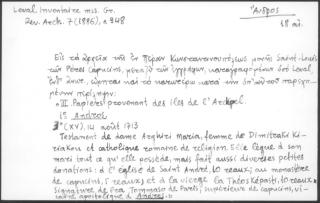 Laval, Inventaire mss. Gr.
Rev. Arch. 7 (1886), σ 948
Ἄνδρος
18 αἰ.
Εἰς τὰ ἀρχεῖα τῆς ἐν Πέραν Κωνσταντινουπόλεως μονῆς Saint-Louis
τῶν Pères Capucins, μεταξὺ τῶν ἐγγράφων, καταγράφεται ὑπὸ Laval
καὶ τὸ κατωτέρω κατὰ τὴν ὑπ' αὐτοῦ παρεχο-
μένην περίληψιν:
"III. Papiers provenant des îles de l'Archipel.
1º Andros
3º (XV), 14 août 1713
Testament de dame Argyri Maria, femme de Dimitraki Ki-
riakou et catholique romaine de religion. Elle lègue à son
mari tout ce qu'elle possède, mais fait aussi diverses petites
donations: à l'église de Saint André, 10 reaux; au monastère
de capucins, 5 reaux; et à la vierge la Théosképasti, 10 reaux.
Signature de Fra Tommaso de Paris, supérieure de capucins, vi-
caire apostolique d'Andros.